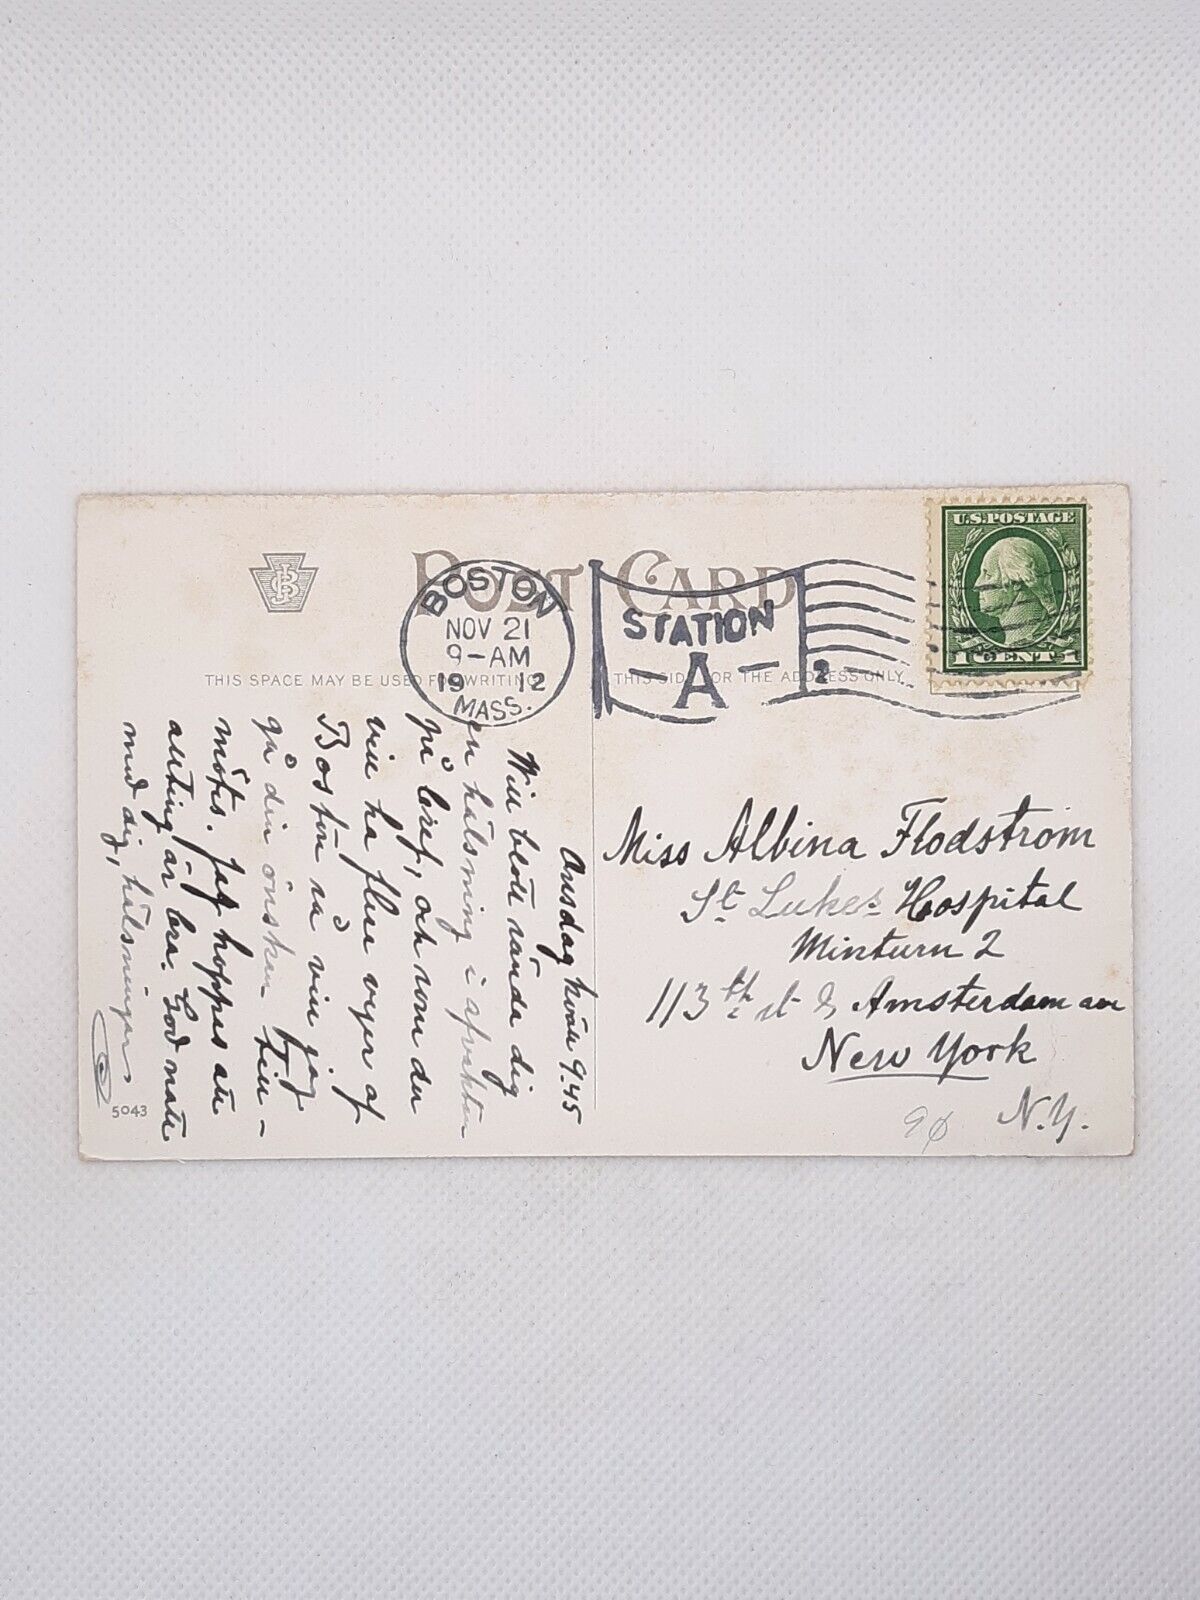 POST CARD
BOSTON
NOV 21
9-AM
19 12
MASS.
STATION
A
2
U.S. POSTAGE
1 CENT 1
THIS SPACE MAY BE USED FOR WRITING
THIS SIDE FOR THE ADDRESS ONLY.
Onsdag kväll 9.45
Will blott sända dig
en hälsning i afvaktan
på bref, och som du
vill ha flera vyer af
Boston så vill jag
gå din önskan till-
mötes. Jag hoppas att
allting är bra. God natt
med dig, hälsningar
5043
Miss Albina Flodstrom
St Lukes Hospital
Minturn 2
113th st & Amsterdam ave
New York
N.Y.
9¢